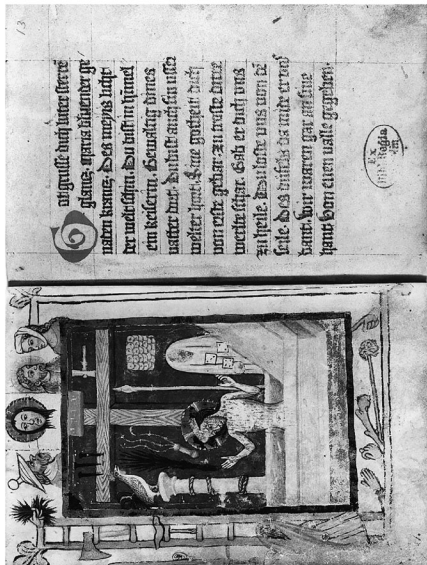 13
Got grusse dich luter sterre
glantz, maria bluender ge
naten krantz. Des meyes liecht
der welte schin. Du bist in himel
ein keiserin. Gewaltig dines
vatter Du bist auch sin usser
welter hort. Sine gotheit dich
von erste gebar. Zu troste dirre
welte schar. Gab er dich vns
zu heile. Du loste vns von de
seile. Des tufels da mide er vns
bant. Wir waren gar an sine
hant Von euen valle gegeben.
Ex
Bibl. Regia